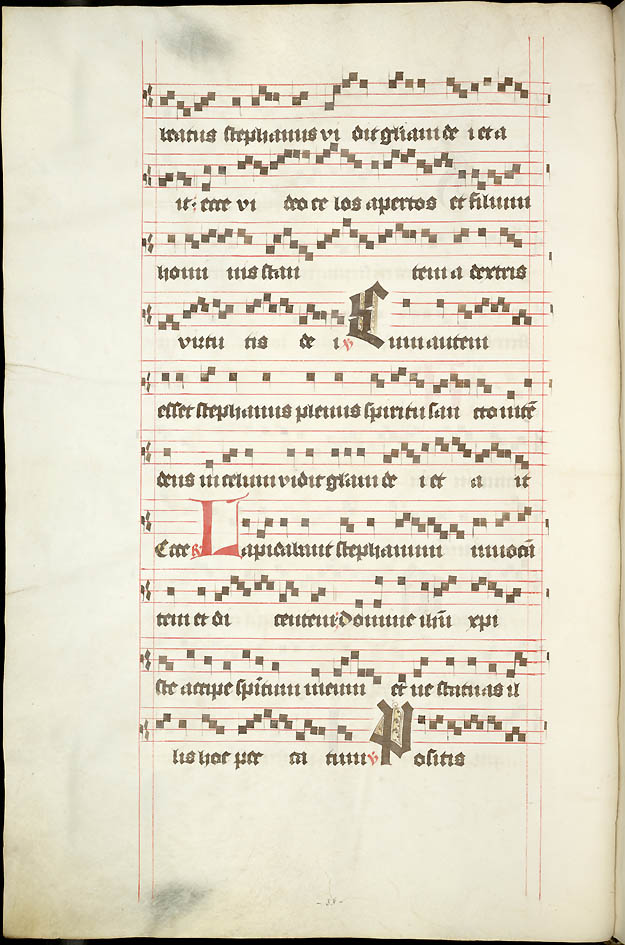 beatus stephanus vi dit gliam de i et a
it: ecce vi deo ce los apertos et filium
homi nis stan tem a dextris
virtu tis de i ℣ Cum autem
esset stephanus plenus spiritu san cto intē
dens in celum vidit gliam de i et a it
Ecce ℟ Lapidabant stephanum invocā
tem et di centem: Domine ihu xpi
ste accipe spitum meum et ne statuas il
lis hoc pec ca tum ℣ Positis
- 88 -